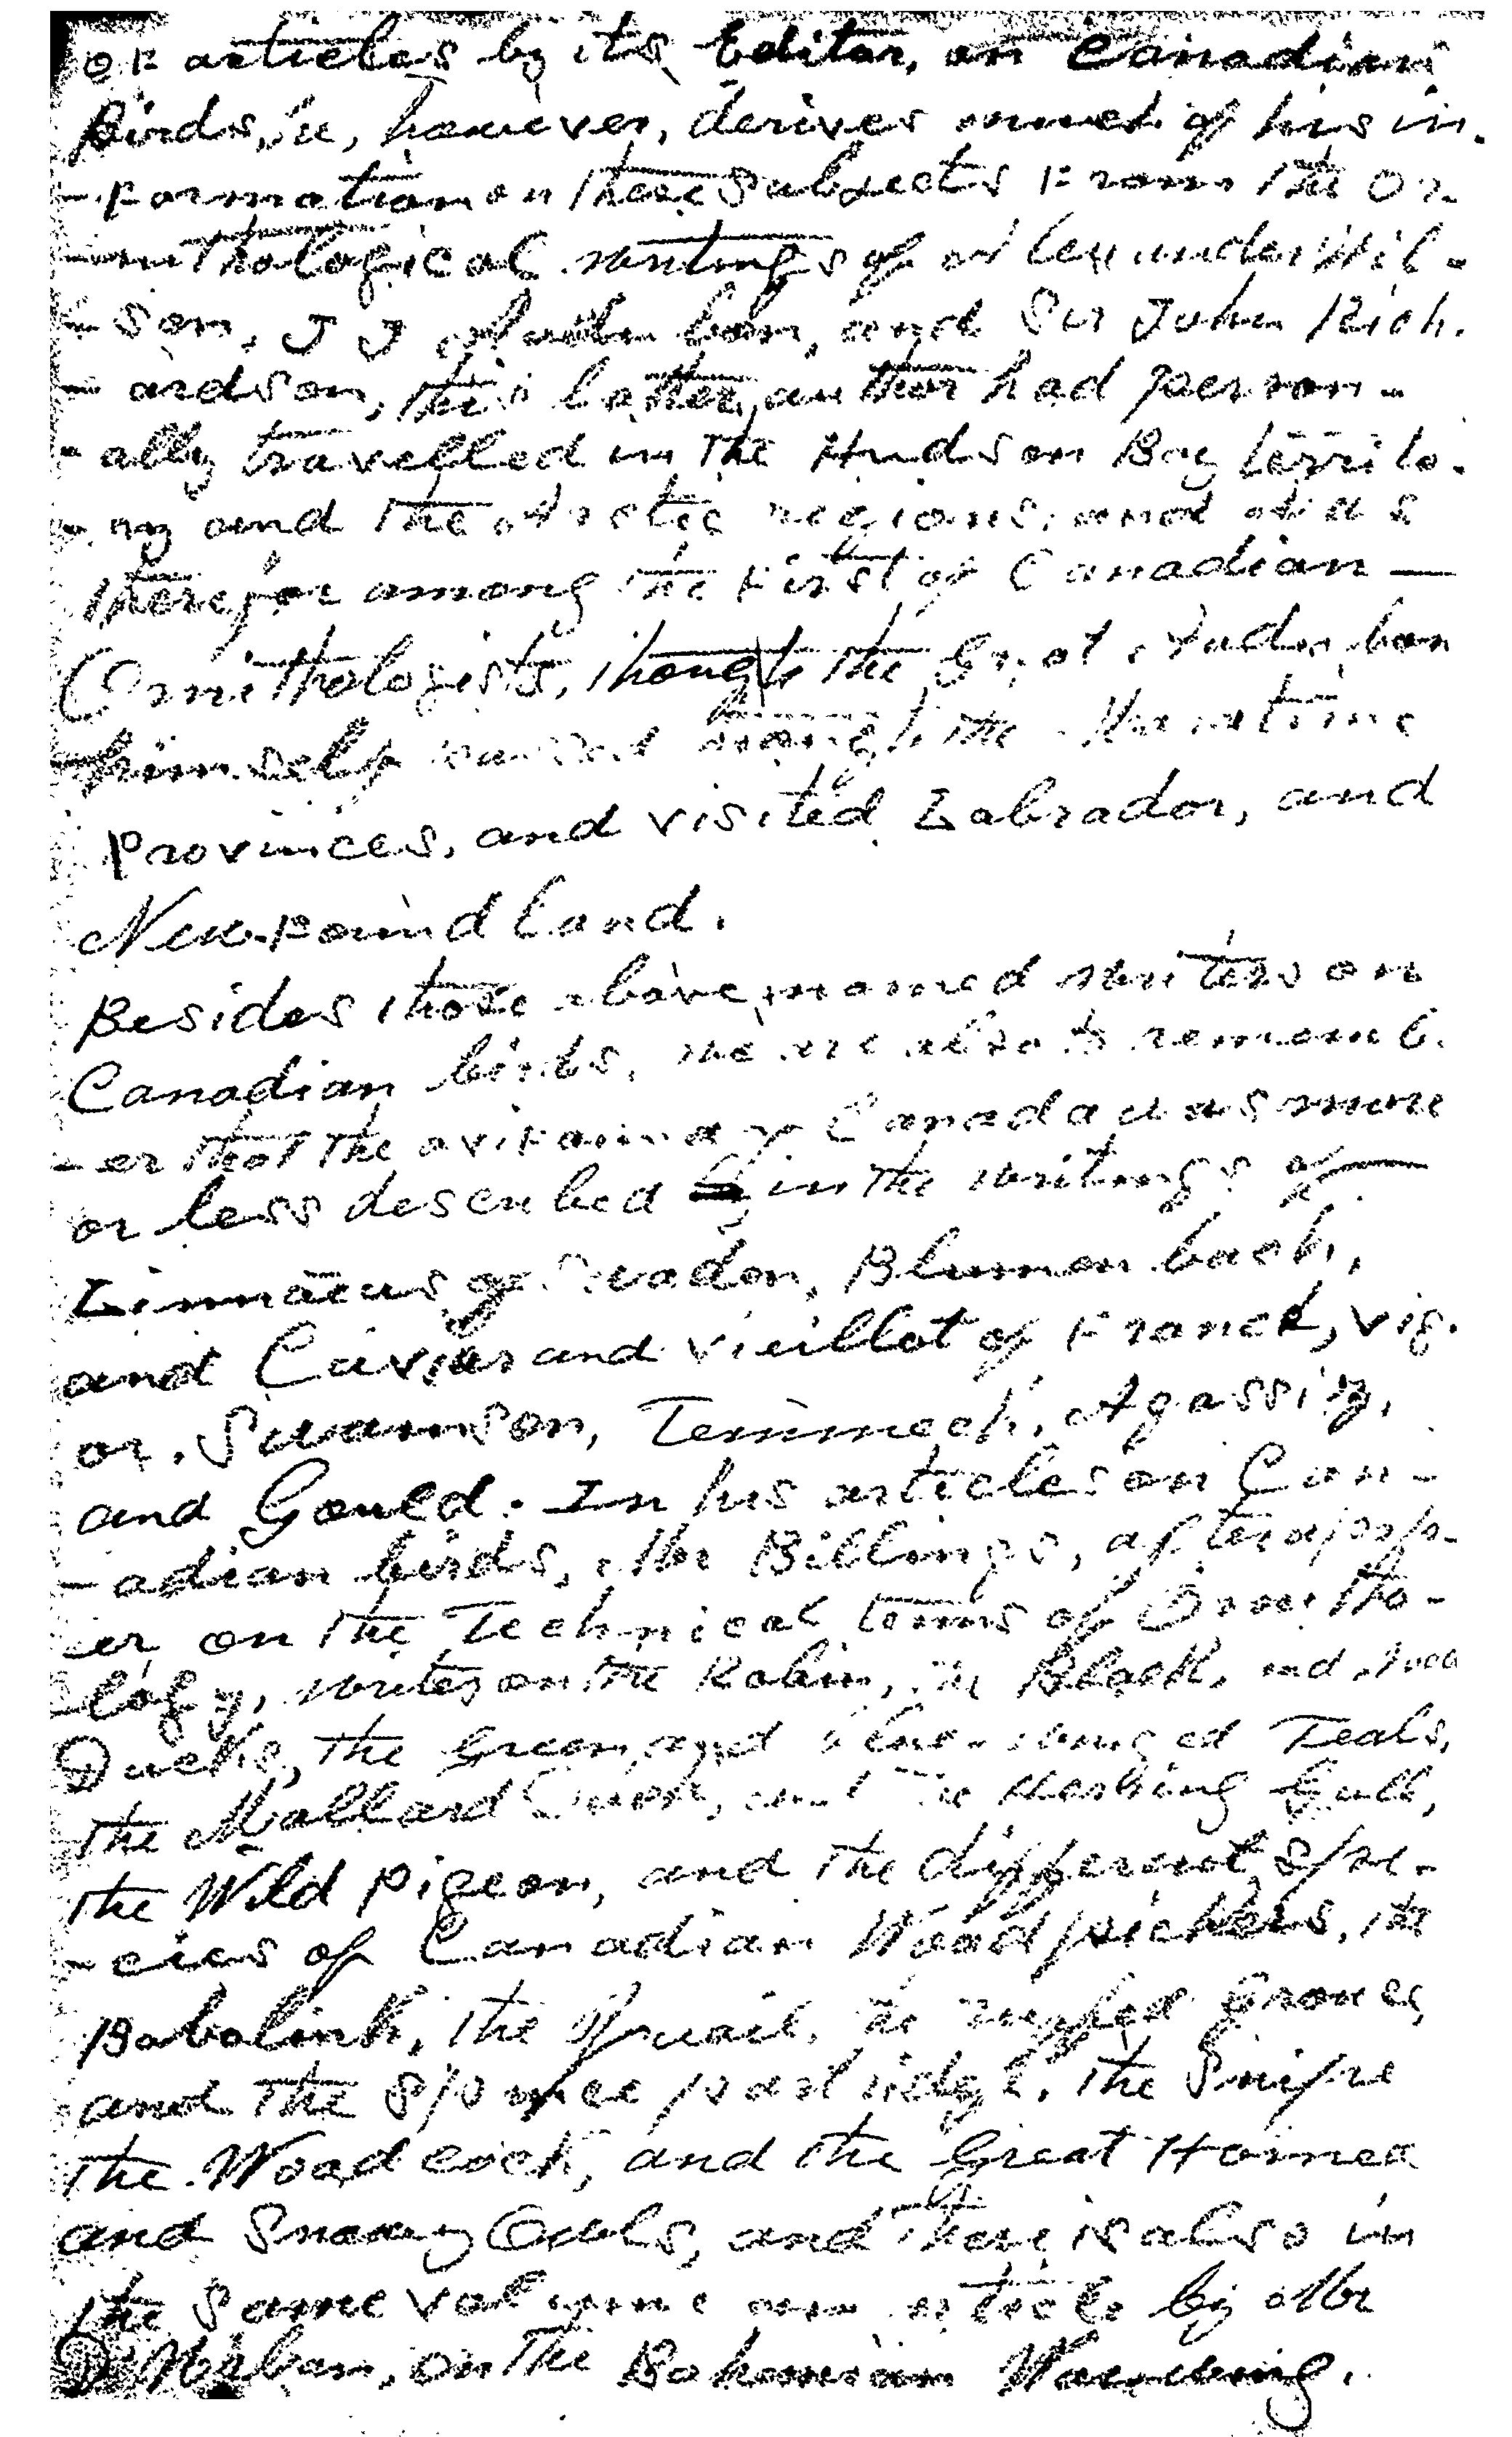 of articles by its Editor, on Canadian
Birds, he, however, derives much of his in-
-formation on these subjects from the Or-
-nithological writings of Alexander Wil-
-son, J J Audubon, and Sir John Rich-
-ardson, this latter author had person-
-ally travelled in the Hudson Bay territo-
-ry and the Arctic regions, and was
therefor among the first of Canadian —
Ornithologists, though the Great Audubon
himself passed through the Maritime
Provinces, and visited Labrador, and
Newfoundland.
Besides those above named writers on
Canadian birds, we are also to rememb-
-er that the avifauna of Canada was more
or less described in the writings of —
Linnaeus of Sweden, Blumenbach,
and Cuvier and Vieillot of France, Vig-
or, Swainson, Temmeck, Agassiz,
and Gould. In his articles on Can-
-adian birds, Mr Billings, after a pap-
-er on the Technical terms of Ornitho-
-logy, writes on the Robin, the Black, and Wood
Ducks, the Green, and blue-winged Teals,
the Mallard Duck, and the Herring Gull,
the Wild Pigeon, and the different spe-
-cies of Canadian Woodpickers, the
Bobolink, the Quail, the ruffed Grouse,
and the Spruce partridge, the Snipe
the Woodcock, and the Great Horned
and Snowy Owls, and there is also in
the same volume an article by Mr
D'Urban, on the Bohemian Waxwing.